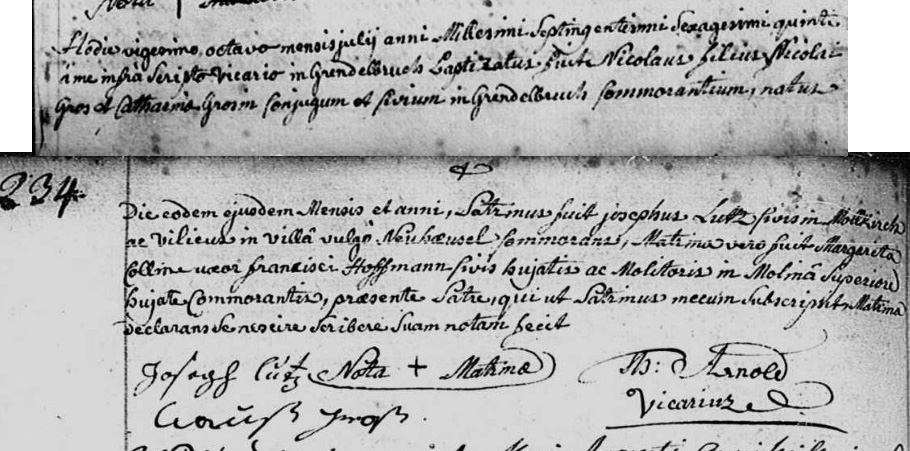 Hodie vigesimo octavo mensis julij anni Millesimi Septingentesimi Sexagesimi quinti
à me infrà Scripto Vicario in Grendelbruch baptizatus fuit Nicolaus filius Nicolai
Gros et Catharinæ Grosin Conjugum et Civium in Grendelbruch Commorantium, natus
234
Die eodem ejusdem Mensis et anni, Patrinus fuit josephus Lutz Civis in
ac Vilicus in villâ vulgò Neuhæusel Commorans, Matrina verò fuit Margarita
Colline uxor francisci Hoffmann Civis hujatis ac Molitoris in Molinâ Superiori
hujate Commorantis, præsente Patre, qui ut Patrinus mecum Subscripsit, Matrina
declarans Se nescire Scribere Suam notam fecit
Joseph Lutz Nota + Matrinæ Th: Arnold
Vicarius